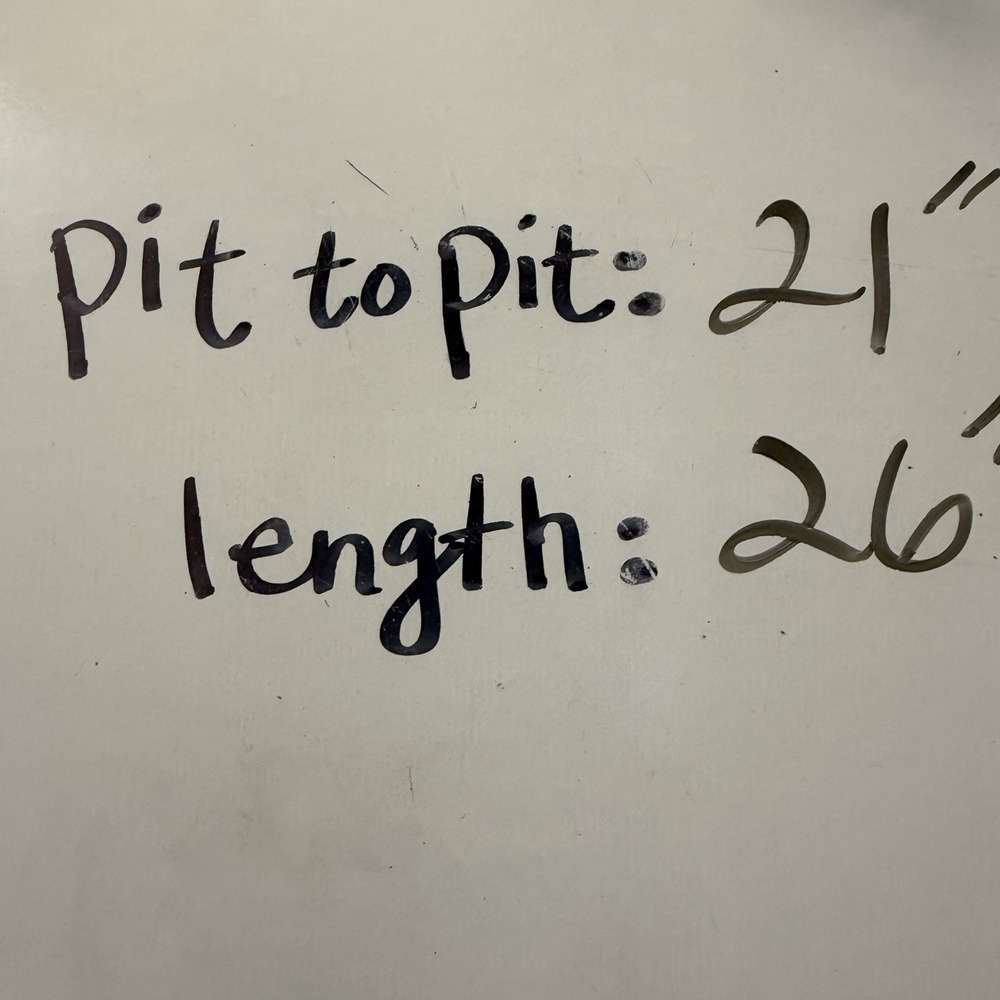 pit to pit: 21"
length: 26"